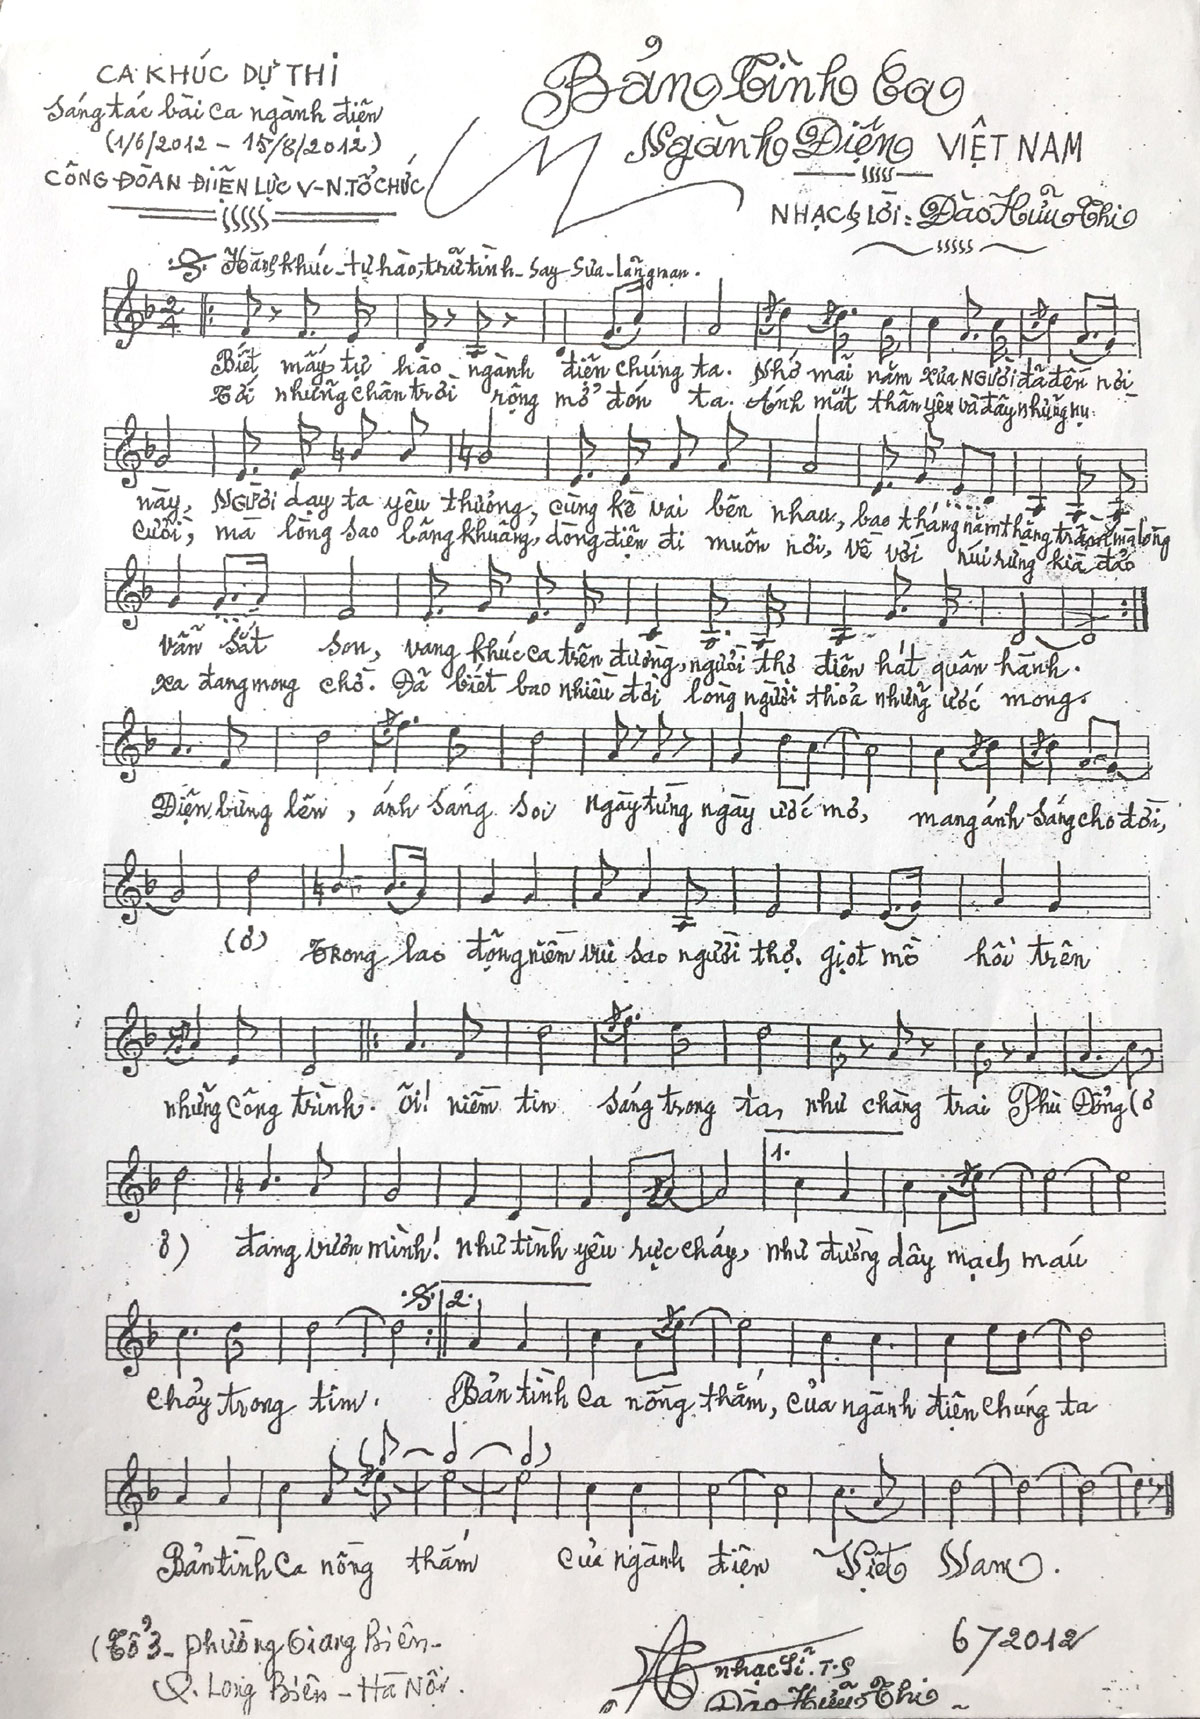 CA KHÚC DỰ THI
Sáng tác bài ca ngành điện
(1/6/2012 - 15/8/2012)
CÔNG ĐOÀN ĐIỆN LỰC V-N TỔ CHỨC
Bản Tình Ca
Ngành Điện VIỆT NAM
NHẠC & LỜI: Đào Hữu Thi
Hành khúc - tự hào, trữ tình - Say - Sưa - Lãng mạn.
2/4
Biết mấy tự hào ngành điện chúng ta. Nhớ mãi năm xưa NGƯỜI đã đến nơi
Tới những chân trời rộng mở đón ta. Ánh mắt thân yêu và đầy những nụ
này, NGƯỜI dạy ta yêu thương, cùng kề vai bên nhau, bao tháng năm thăng trầm mà lòng
cười, mà lòng sao bâng khuâng, dòng điện đi muôn nơi, về với núi rừng kia đảo
vẫn sắt son, vang khúc ca trên đường, người thợ điện hát quân hành.
xa đang mong chờ. Đã biết bao nhiêu đời lòng người thỏa những ước mong.
Điện bừng lên, ánh sáng soi ngày từng ngày ước mơ, mang ánh sáng cho đời,
(ơ) Trong lao động niềm vui sao người thợ. giọt mồ hôi trên
những công trình. Ôi! niềm tin sáng trong ta, như chàng trai Phù Đổng (ơ
1.
ơ) đang vươn mình! như tình yêu rực cháy, như đường dây mạch máu
2.
chảy trong tim. Bản tình ca nồng thắm, của ngành điện chúng ta
Bản tình ca nồng thắm của ngành điện Việt Nam.
(Tổ 3 - phường Giang Biên -
Q. Long Biên - Hà Nội.
6/2012
nhạc sĩ. T.S
Đào Hữu Thi